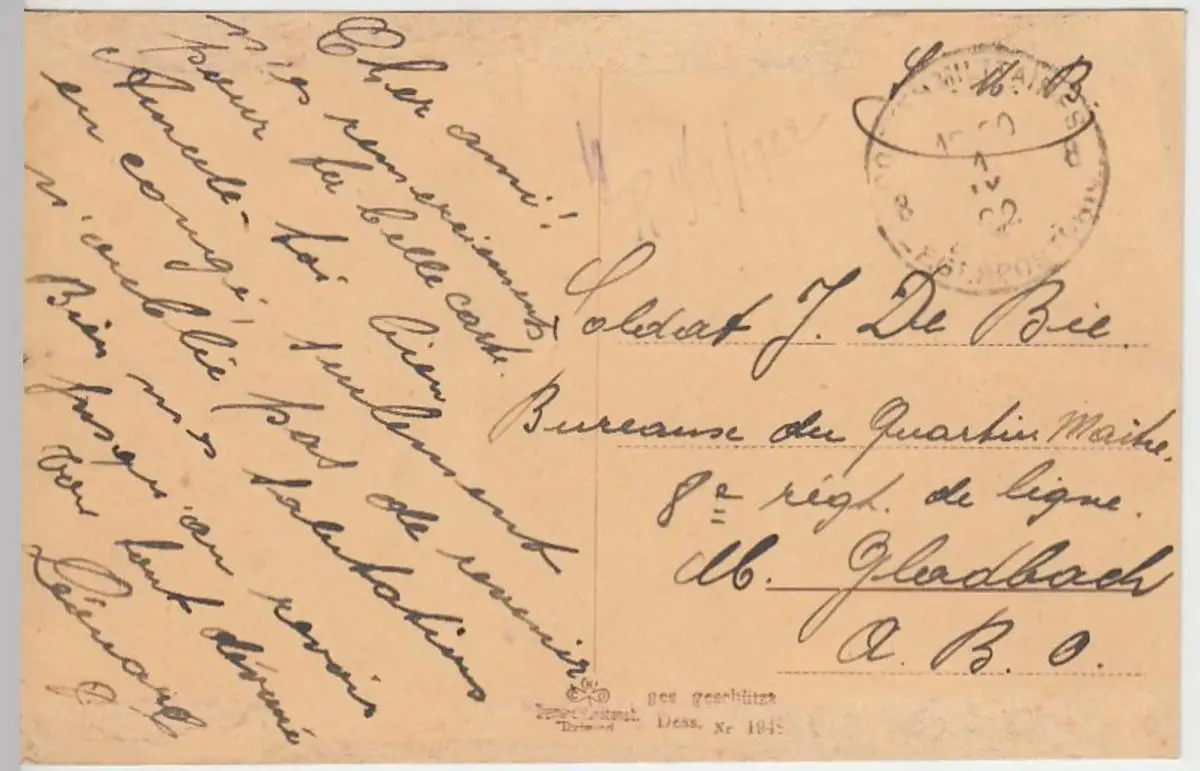 Cher ami!
Mes remerciements
pour ta belle carte.
Amuse-toi bien
en congé, seulement
n'oublie pas de revenir.
Bien mes salutations
Jusqu'au revoir
ton tout dévoué
Liénard
S. M. B.
POSTES MILITAIRES
8 8
22
Soldat J. De Bie.
Bureause du Quartier Maitre.
8e régt. de ligne.
M. Gladbach
A. B. O.
ges geschützt
Dess. Nr 194
Dortmund